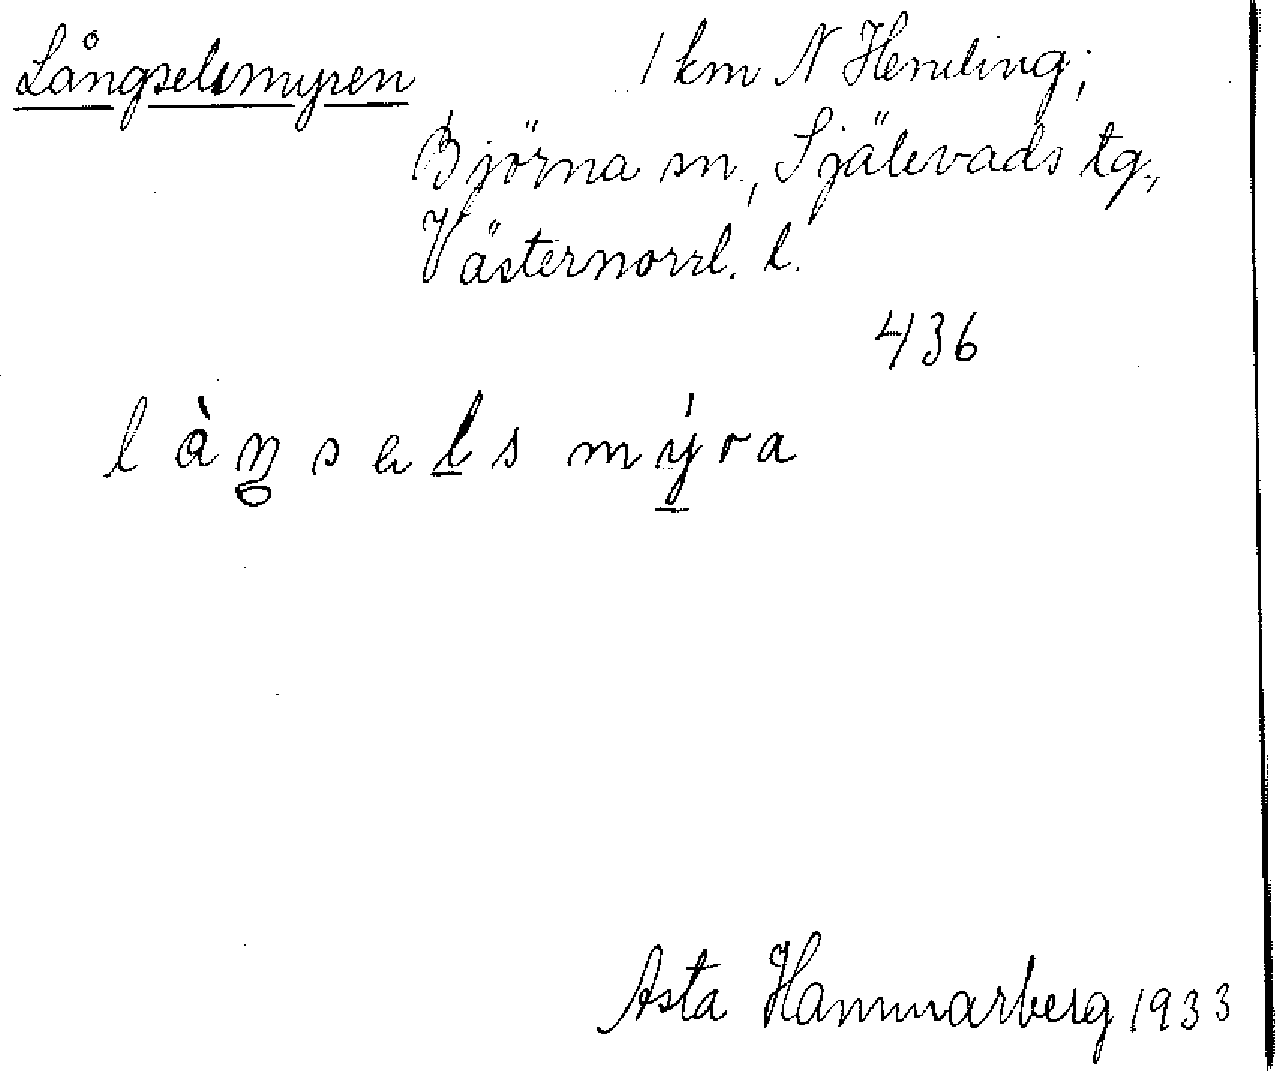 Långselsmyren 1 km N Hemling;
Björna sn, Själevads tg.,
Västernorrl. l.
436
l à ŋ s e l s m ý r a
Asta Hammarberg 1933